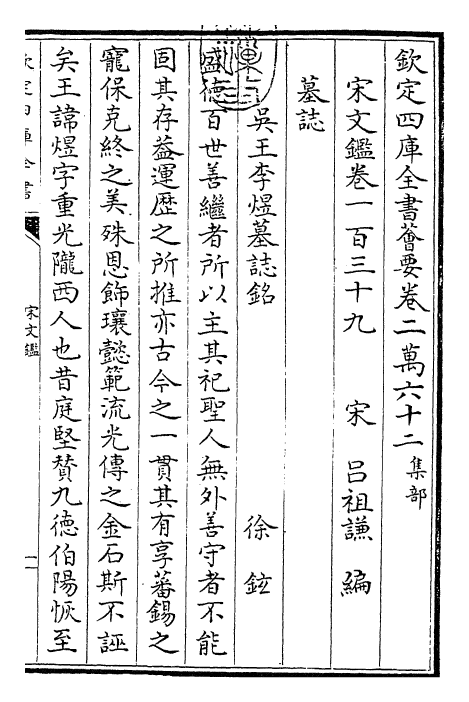 欽定四庫全書薈要卷二萬六十二 集部
宋文鑑卷一百三十九 宋 呂祖謙 編
墓誌
吳王李煜墓誌銘 徐 鉉
盛徳百世善繼者所以主其祀聖人無外善守者不能
固其存葢運歴之所推亦古今之一貫其有享蕃錫之
寵保克終之美殊恩飾壤懿範流光傳之金石斯不誣
矣王諱煜字重光隴西人也昔庭堅賛九德伯陽恢至
欽定四庫全書
宋文鑑
一